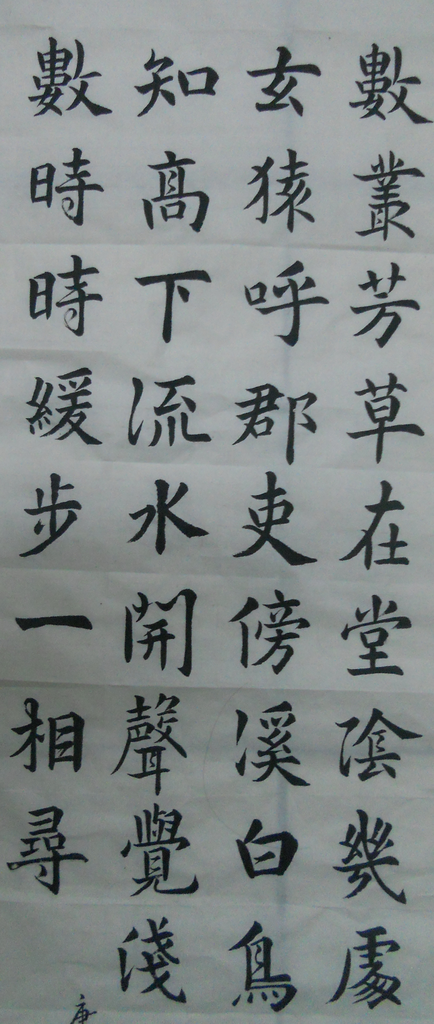 數叢芳草在堂陰幾處
玄猿呼郡吏傍溪白鳥
知高下流水開聲覺淺
數時時緩步一相尋
康